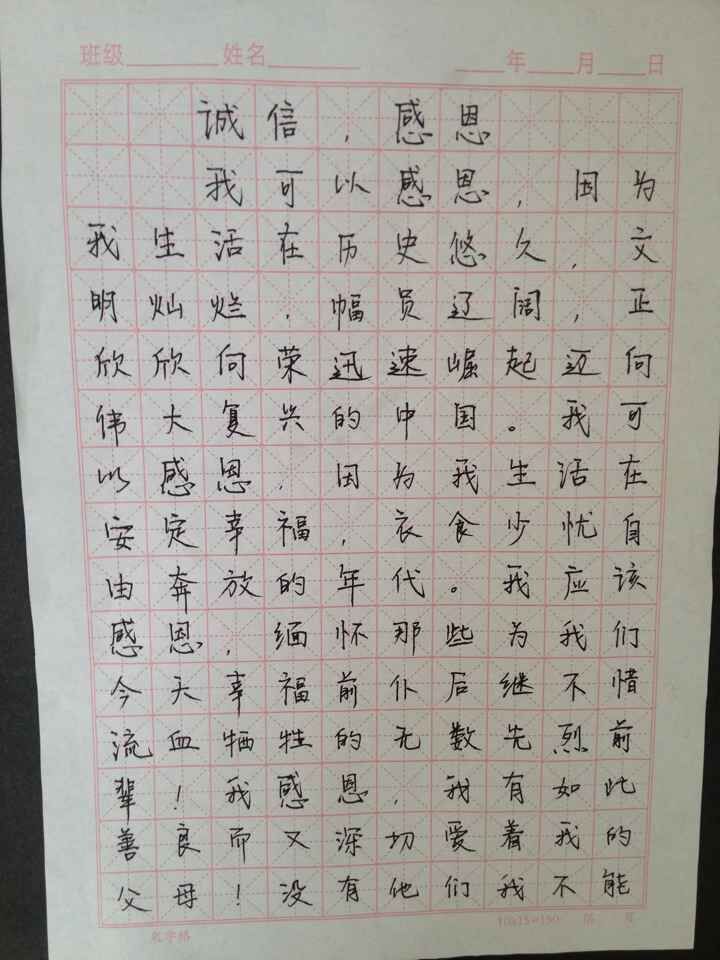 班级 姓名 年 月 日
诚信，感恩
我可以感恩，因为
我生活在历史悠久，文
明灿烂，幅员辽阔，正
欣欣向荣迅速崛起迈向
伟大复兴的中国。我可
以感恩，因为我生活在
安定幸福，衣食少忧自
由奔放的年代。我应该
感恩，缅怀那些为我们
今天幸福前仆后继不惜
流血牺牲的无数先烈前
辈！我感恩，我有如此
善良而又深切爱着我的
父母！没有他们我不能
10x15=150